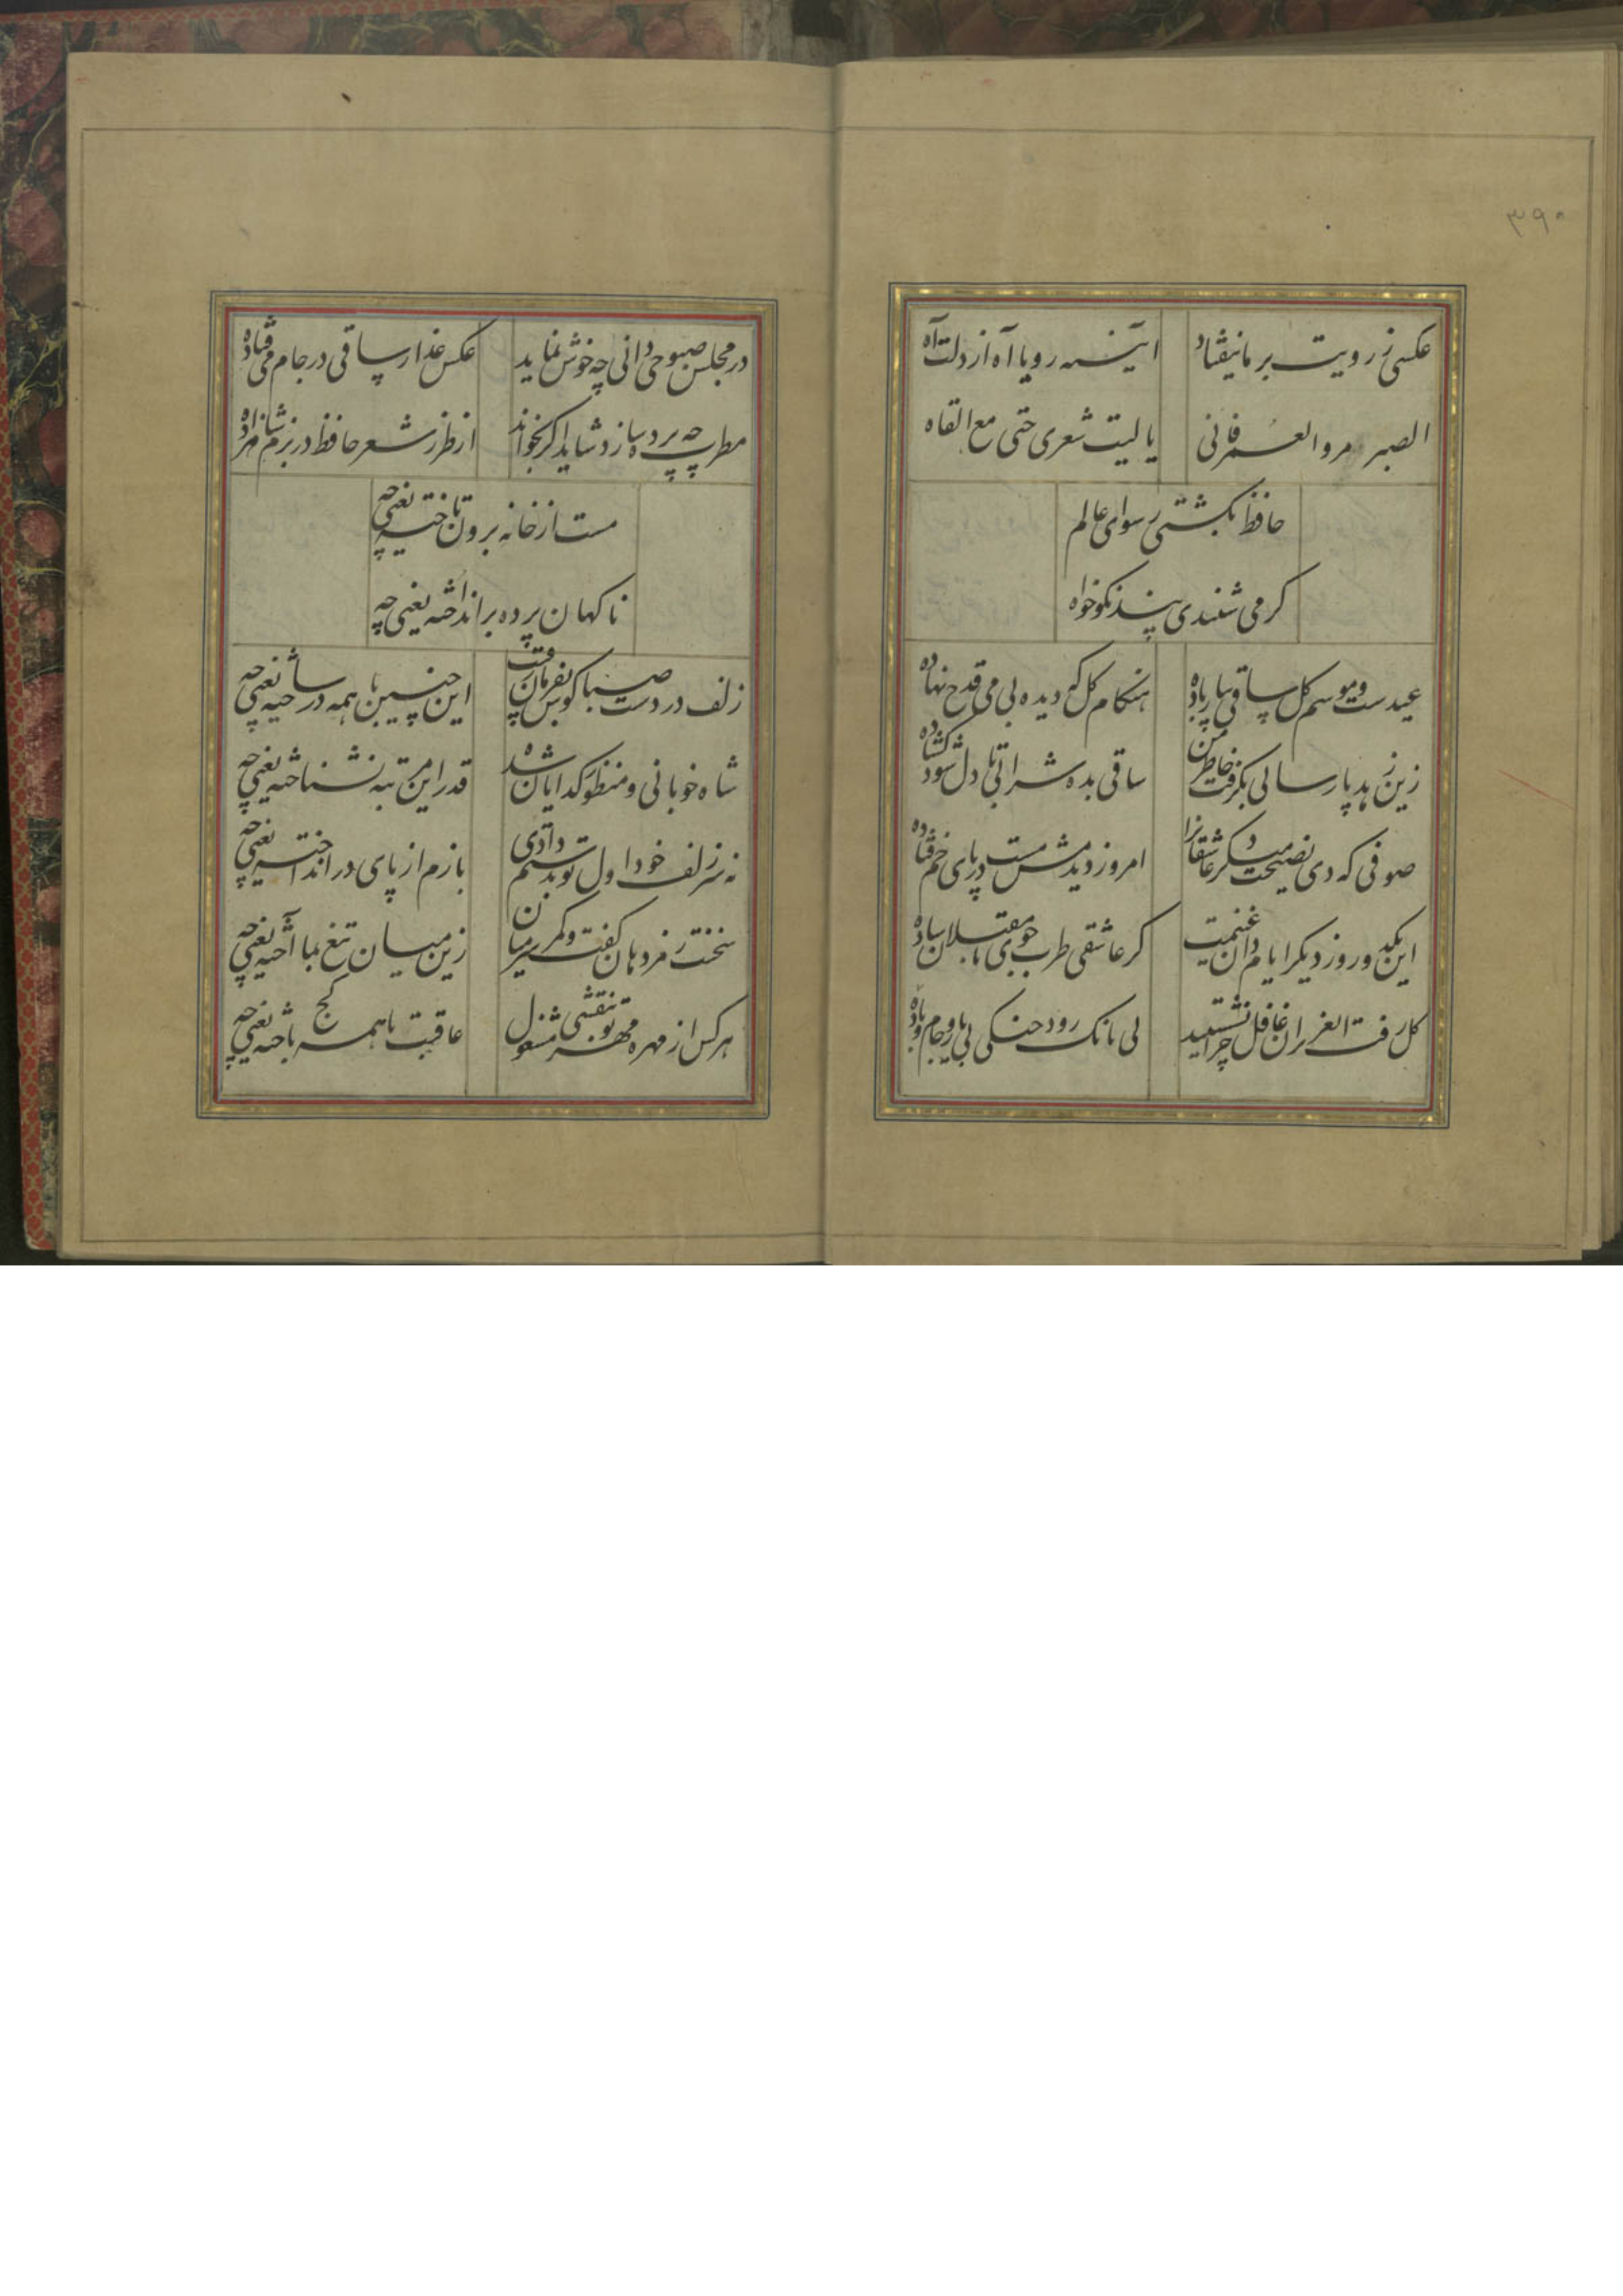 ۳۹۰
عکسی ز رویت بر ما نیفتاد آیینه رویا آه از دلت آه
الصبر مر و العمر فانی یا لیت شعری حتی مع القاه
حافظ بکشتی رسوای عالم
کر می شنیدی پند نکو خواه
عیدست و موسم کل ساقی بیار باده هنکام کل که دیده بی می قدح نهاده
زین زهد پارسائی بکرفت خاطر من ساقی بده شرابی تا دل شود کشاده
صوفی که دی نصیحت میکرد عاشقانرا امروز دیدمش مست در پای خم فتاده
این یکدو روز دیکر ایام دان غنیمت کر عاشقی طرب جوی با مقبلان ساده
کل رفت ای عزیزان غافل چرا نشستید بی بانک رود چنکی بی یار و جام و باده
در مجلس صبوحی دانی چه خوش نماید عکس عذار ساقی در جام می فتاده
مطرب چه پرده سازد شاید اکر بخواند از طرز شعر حافظ در بزم شاهزاده
مست از خانه برون تاخته یعنی چه
ناکهان پرده بر انداخته یعنی چه
زلف در دست صبا کوش بفرمان رقیب این چنین با همه در ساخته یعنی چه
شاه خوبانی و منظور کدایان شده قدر این مرتبه نشناخته یعنی چه
نه سر زلف خود اول تو بدستم دادی بازم از پای در انداخته یعنی چه
سخنت رمز دهان کفت و کمر سر میان زین میان تیغ بما آخته یعنی چه
هر کس از مهره مهر تو بنقشی مشغول عاقبت با همه کج باخته یعنی چه